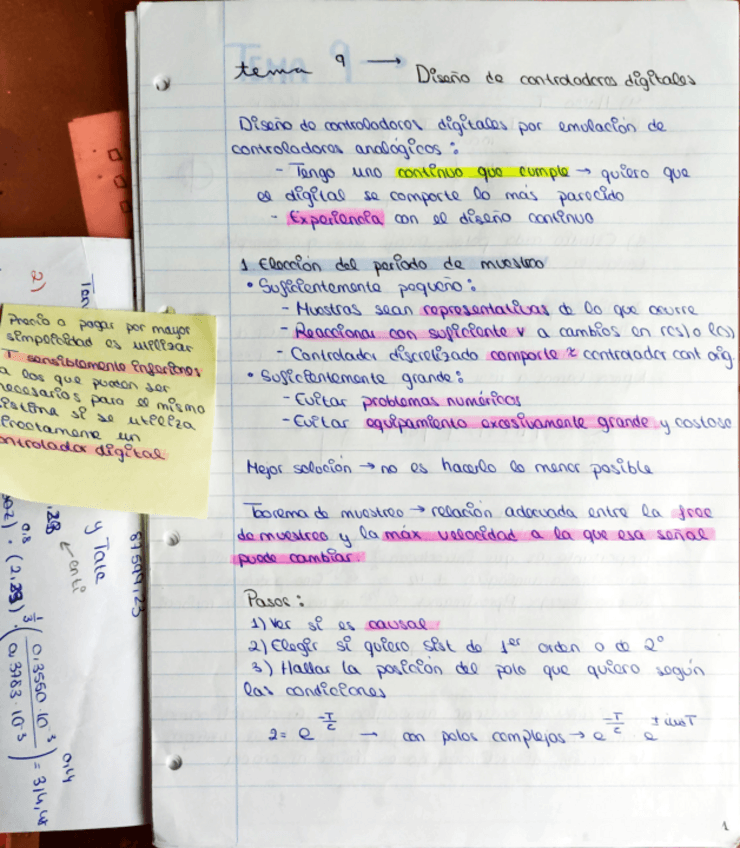 tema 9 → Diseño de controladores digitales
Diseño de controladores digitales por emulación de
controladores analógicos :
- Tengo uno continuo que cumple → quiero que
el digital se comporte lo más parecido
- Experiencia con el diseño continuo
1 Elección del período de muestreo
• Suficientemente pequeño :
- Muestras sean representativas de lo que ocurre
- Reaccionar con suficiente v a cambios en r(s) o l(s)
- Controlador discretizado comporte ≈ controlador cont orig.
• Suficientemente grande :
- Evitar problemas numéricos
- Evitar equipamiento excesivamente grande y costoso
Mejor solución → no es hacerlo lo menor posible
Teorema de muestreo → relación adecuada entre la frec
de muestreo y la máx velocidad a la que esa señal
puede cambiar.
Pasos :
1) Ver si es causal
2) Elegir si quiero sist de 1er orden o de 2º
3) Hallar la posición del polo que quiero según
las condiciones
z = e^(-T/τ) → con polos complejos → e^(-T/τ) · e^(±jωT)
1
Precio a pagar por mayor
simplicidad es utilizar
T sensiblemente inferiores
a los que puedan ser
necesarios para el mismo
sistema si se utiliza
directamente un
controlador digital
2)
y Tale